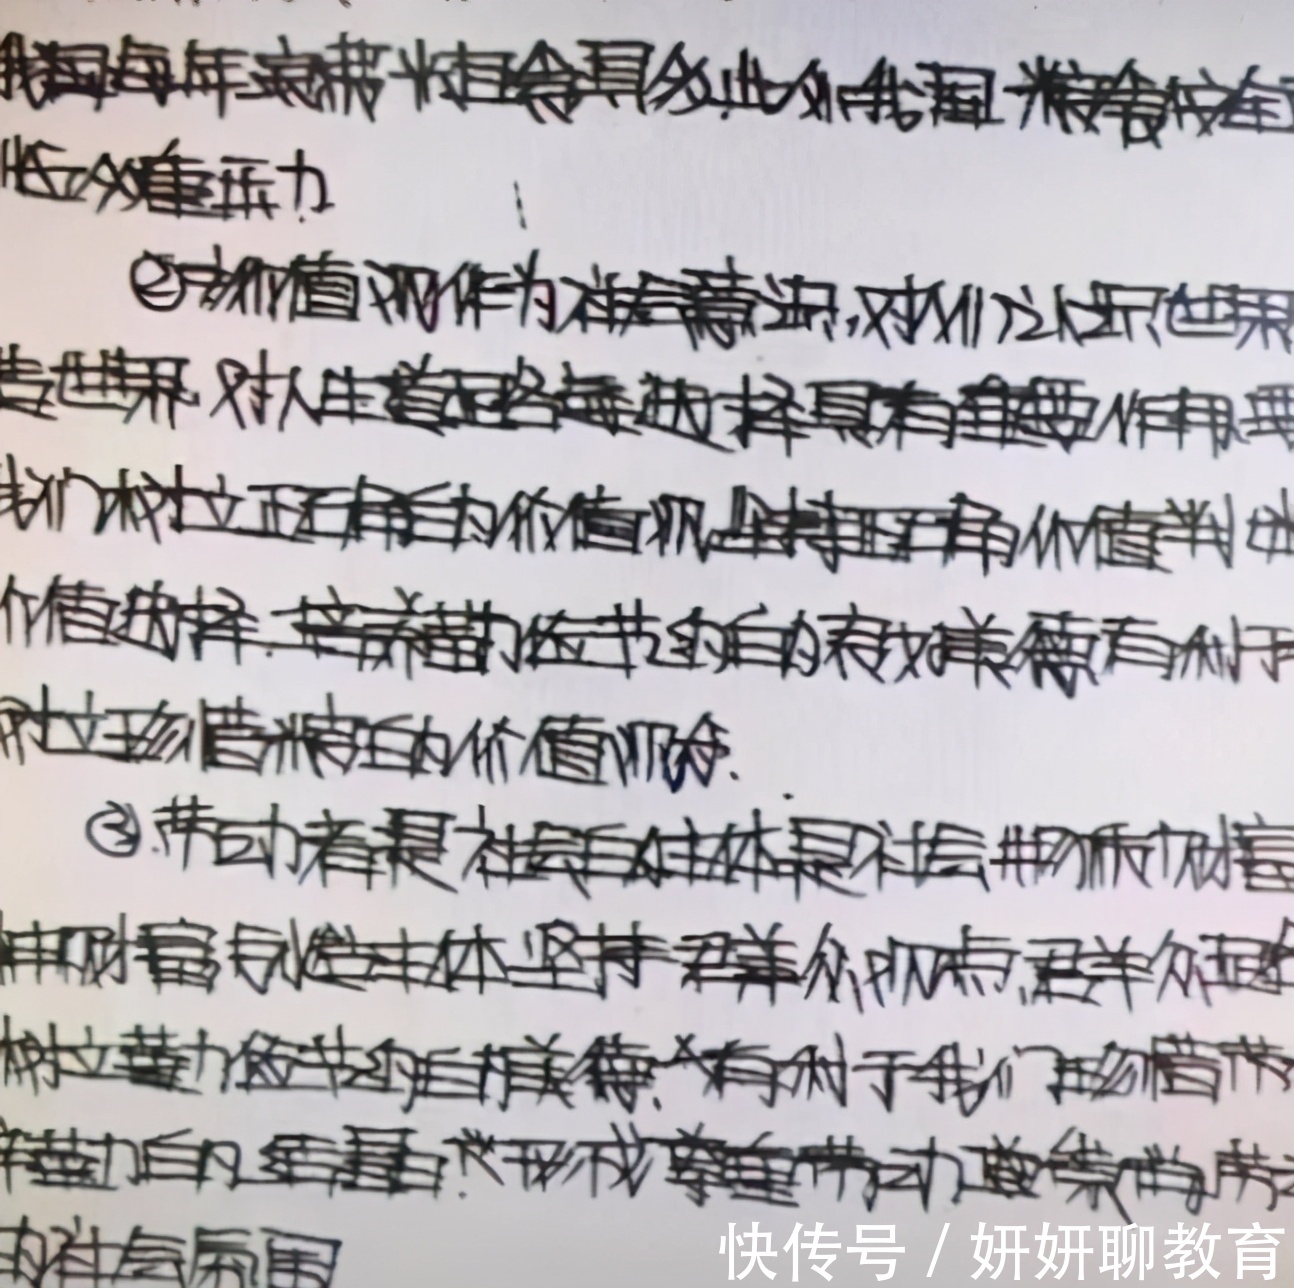 我国每年浪费粮食具多,此外我国粮食存在
低众重压力
②价值观作为社会意识,对人们认识世界
造世界对人生道路每抉择具有重要作用要
我们树立正确的价值观坚持正确价值判断
价值抉择.培养勤俭节约的良好美德有利于
树立珍惜粮食的价值观念.
③劳动者是社会的主体是社会物质财富
神财富创造主体坚持群众观点,群众路
树立勤俭节约的美德.有利于我们珍惜劳
辛勤的结晶.形成尊重劳动崇尚劳动
的社会氛围
快传号/妍妍聊教育